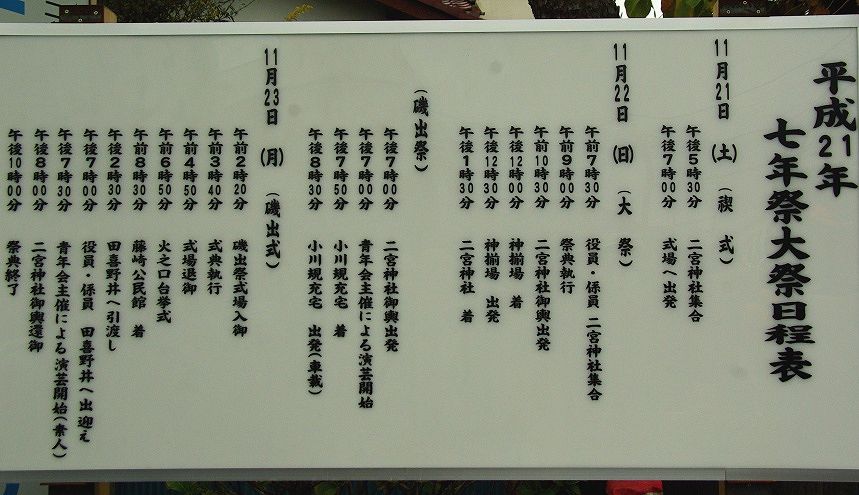 平成21年
七年祭大祭日程表
11月21日（土）（禊 式）
午後5時30分 二宮神社集合
午後7時00分 式場へ出発
11月22日（日）（大 祭）
午前7時30分 役員・係員 二宮神社集合
午前9時00分 祭典執行
午前10時30分 二宮神社御輿出発
午後12時00分 神揃場 着
午後12時30分 神揃場 出発
午後1時30分 二宮神社 着
（磯出祭）
午後7時00分 二宮神社御輿出発
午後7時00分 青年会主催による演芸開始
午後7時50分 小川規充宅 着
午後8時30分 小川規充宅 出発（車載）
11月23日（月）（磯出式）
午前2時20分 磯出祭式場入御
午前3時40分 式典執行
午前4時50分 式場退御
午前6時50分 火之口台挙式
午前8時30分 藤崎公民館 着
午後2時30分 田喜野井へ引渡し
午後7時00分 役員・係員 田喜野井へ出迎え
午後7時30分 青年会主催による演芸開始（素人）
午後8時00分 二宮神社御輿還御
午後10時00分 祭典終了